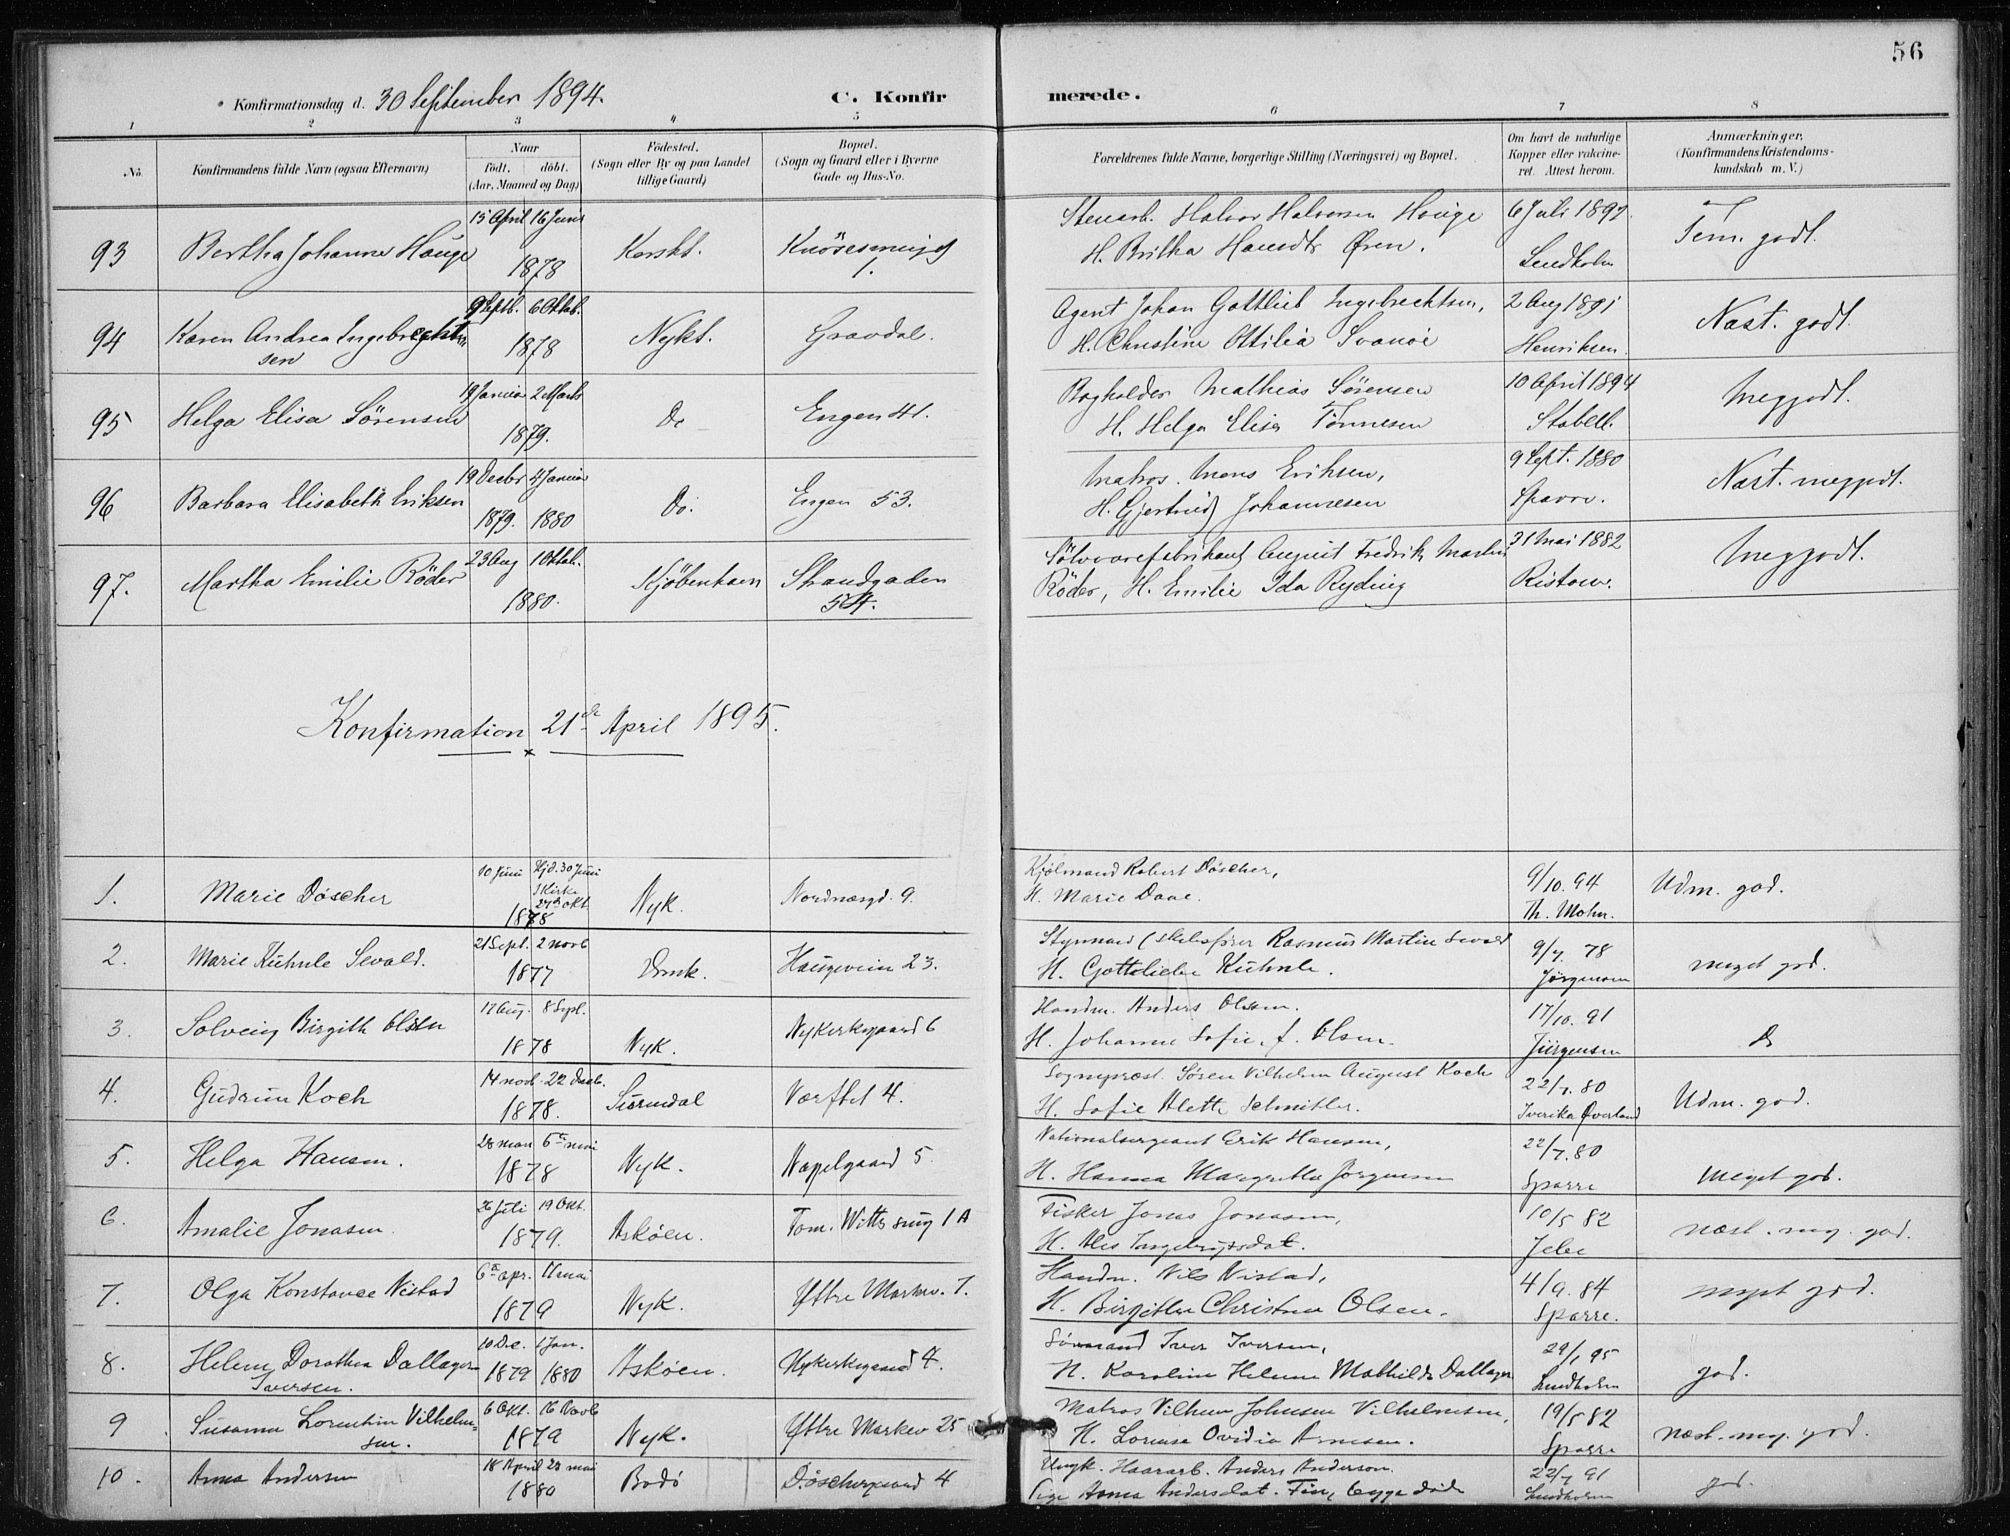 56
Konfirmationsdag d. 30 September 1894.
C. Konfirmerede.
1 2 3 4 5 6 7 8
No. Konfirmandens fulde Navn (ogsaa Efternavn) Naar født. døbt. (Aar, Maaned og Dag) Fødested. (Sogn eller By og paa Landet tillige Gaard) Bopæl. (Sogn og Gaard eller i Byerne Gade og Hus-No. Forældrenes fulde Navne, borgerlige Stilling (Næringsvei) og Bopæl. Om havt de naturlige Kopper eller vakcineret. Attest herom. Anmærkninger. (Konfirmandens Kristendomskundskab m. V.)
93 Bertha Johanne Hauge 15 April 16 Juni 1878 Korskt. 1. Stenarb. Halvor Halvorsen Hauge 6 Juli 1892
H. Britha Øren. Lindholm Tem. godt.
94 Karen Andrea Ingebrechtsen 9 Septb. 6 Oktob. 1878 Nykt. Gravdal. Agent Johan Gottlieb Ingebrechtsen, 2 Aug 1891
H. Christine Ottilia Svanøe Henriksen. Næst. godt.
95 Helga Elisa Sørensen 19 Januar 2 Marts 1879. Do Engen 41. Bogholder Mathias Sørensen 10 April 1894
H. Helga Elisa Tønnesen Stabell. Megjodt.
96 Barbara Elisabeth Eriksen 19 Decbr 4 Januar 1879. 1880 Do. Engen 53. Matros. Mons Eriksen, 9 Sept. 1880
H. Gjertrud Johannesen Sparre. Næst. meggodt.
97. Martha Emilie Röder 23 Aug 1 Oktob. 1880. Kjøbenhavn Strandgaden 54. Sølvvarefabrikant August Fredrik Martin 31 Mai 1882
Röder, H. Emilie Ida Ryding Ristow. Meggodt.
Konfirmation 21de April 1895.
1. Marie Döscher 10 Juni Hjd. 30 Juni i Kirke 27de Okt 1878 Nyk. Nordnæsgd. 9. Kjølmand Robert Döscher,
H. Marie Daae. 9/10. 94 Th. Mohn. Udm. god.
2. Marie Kühnle Sevald. 21 Sept. 2 Novb 1877 Domk. Haugeveien 23. Styrmand Rasmus Martin Sevald
H. Gottliebe Kühnle. 9/7. 78 Jørgensen meget god.
3. Solveig Birgith Olsen 17 Aug. 8 Sept. 1878 Nyk. Nykirkegaard 6 Handm. Anders Olsen.
H. Johanne Sofie. f. Olsen. 17/10. 91 Jürgensen Do
4. Gudrun Koch 14 Novb. 22 Decb. 1878. Surendal Værftet 4. Sognepræst. Søren Vilhelm August Koch
H. Sofie Alette Schnitler. 22/7. 80 Iverika Øverland Udm. god.
5. Helga Hansen. 28 Mars 5te mai 1878 Nyk. Nøppelgaard 5 Nationalsergeant Erik Hansen,
H. Hanna Margrethe Jørgensen 22/7. 80 Sparre Meget god.
6. Amalie Jonasen 26 Juli 19 Okt. 1879. Askøen. Tom. Witts smug 1 A Fisker Jonas Jonasen,
H. Ales Ingebrigtsdat. 10/5 82 næst. mg. god.
7. Olga Konstance Nistad 6te apr. 11 mai 1879 Nyk. Yttre Markev. 7. Handm. Nils Nistad,
H. Birgithe Christine Olsen. 4/9. 84 Sparre. meget god.
8. Helene Dorothea Dallager Iversen. 10 Dec. 1 Jan. 1879 1880 Askøen. Nykirkegaard 4. Sømand Iver Iversen,
H. Karoline Helene Mathilde Dallager 29/1 95 Lindholm god.
9 Susanna Lorentine Vilhelmsen. 6 Okt. 16 Novb 1879 Nyk. Yttre Markev 25 Matros Vilhelm Johnsen Vilhelmsen,
H. Lorense Ovidia Arnesen. 19/5 82 Sparre næst. mg. god.
10. Anna Andersen 18 April 23 mai 1880 Bodø Döschergaard 4 Ungk. Haararb. Anders Anderson.
Pige Anna Andersdat. 22/7 91 Lindholm god.